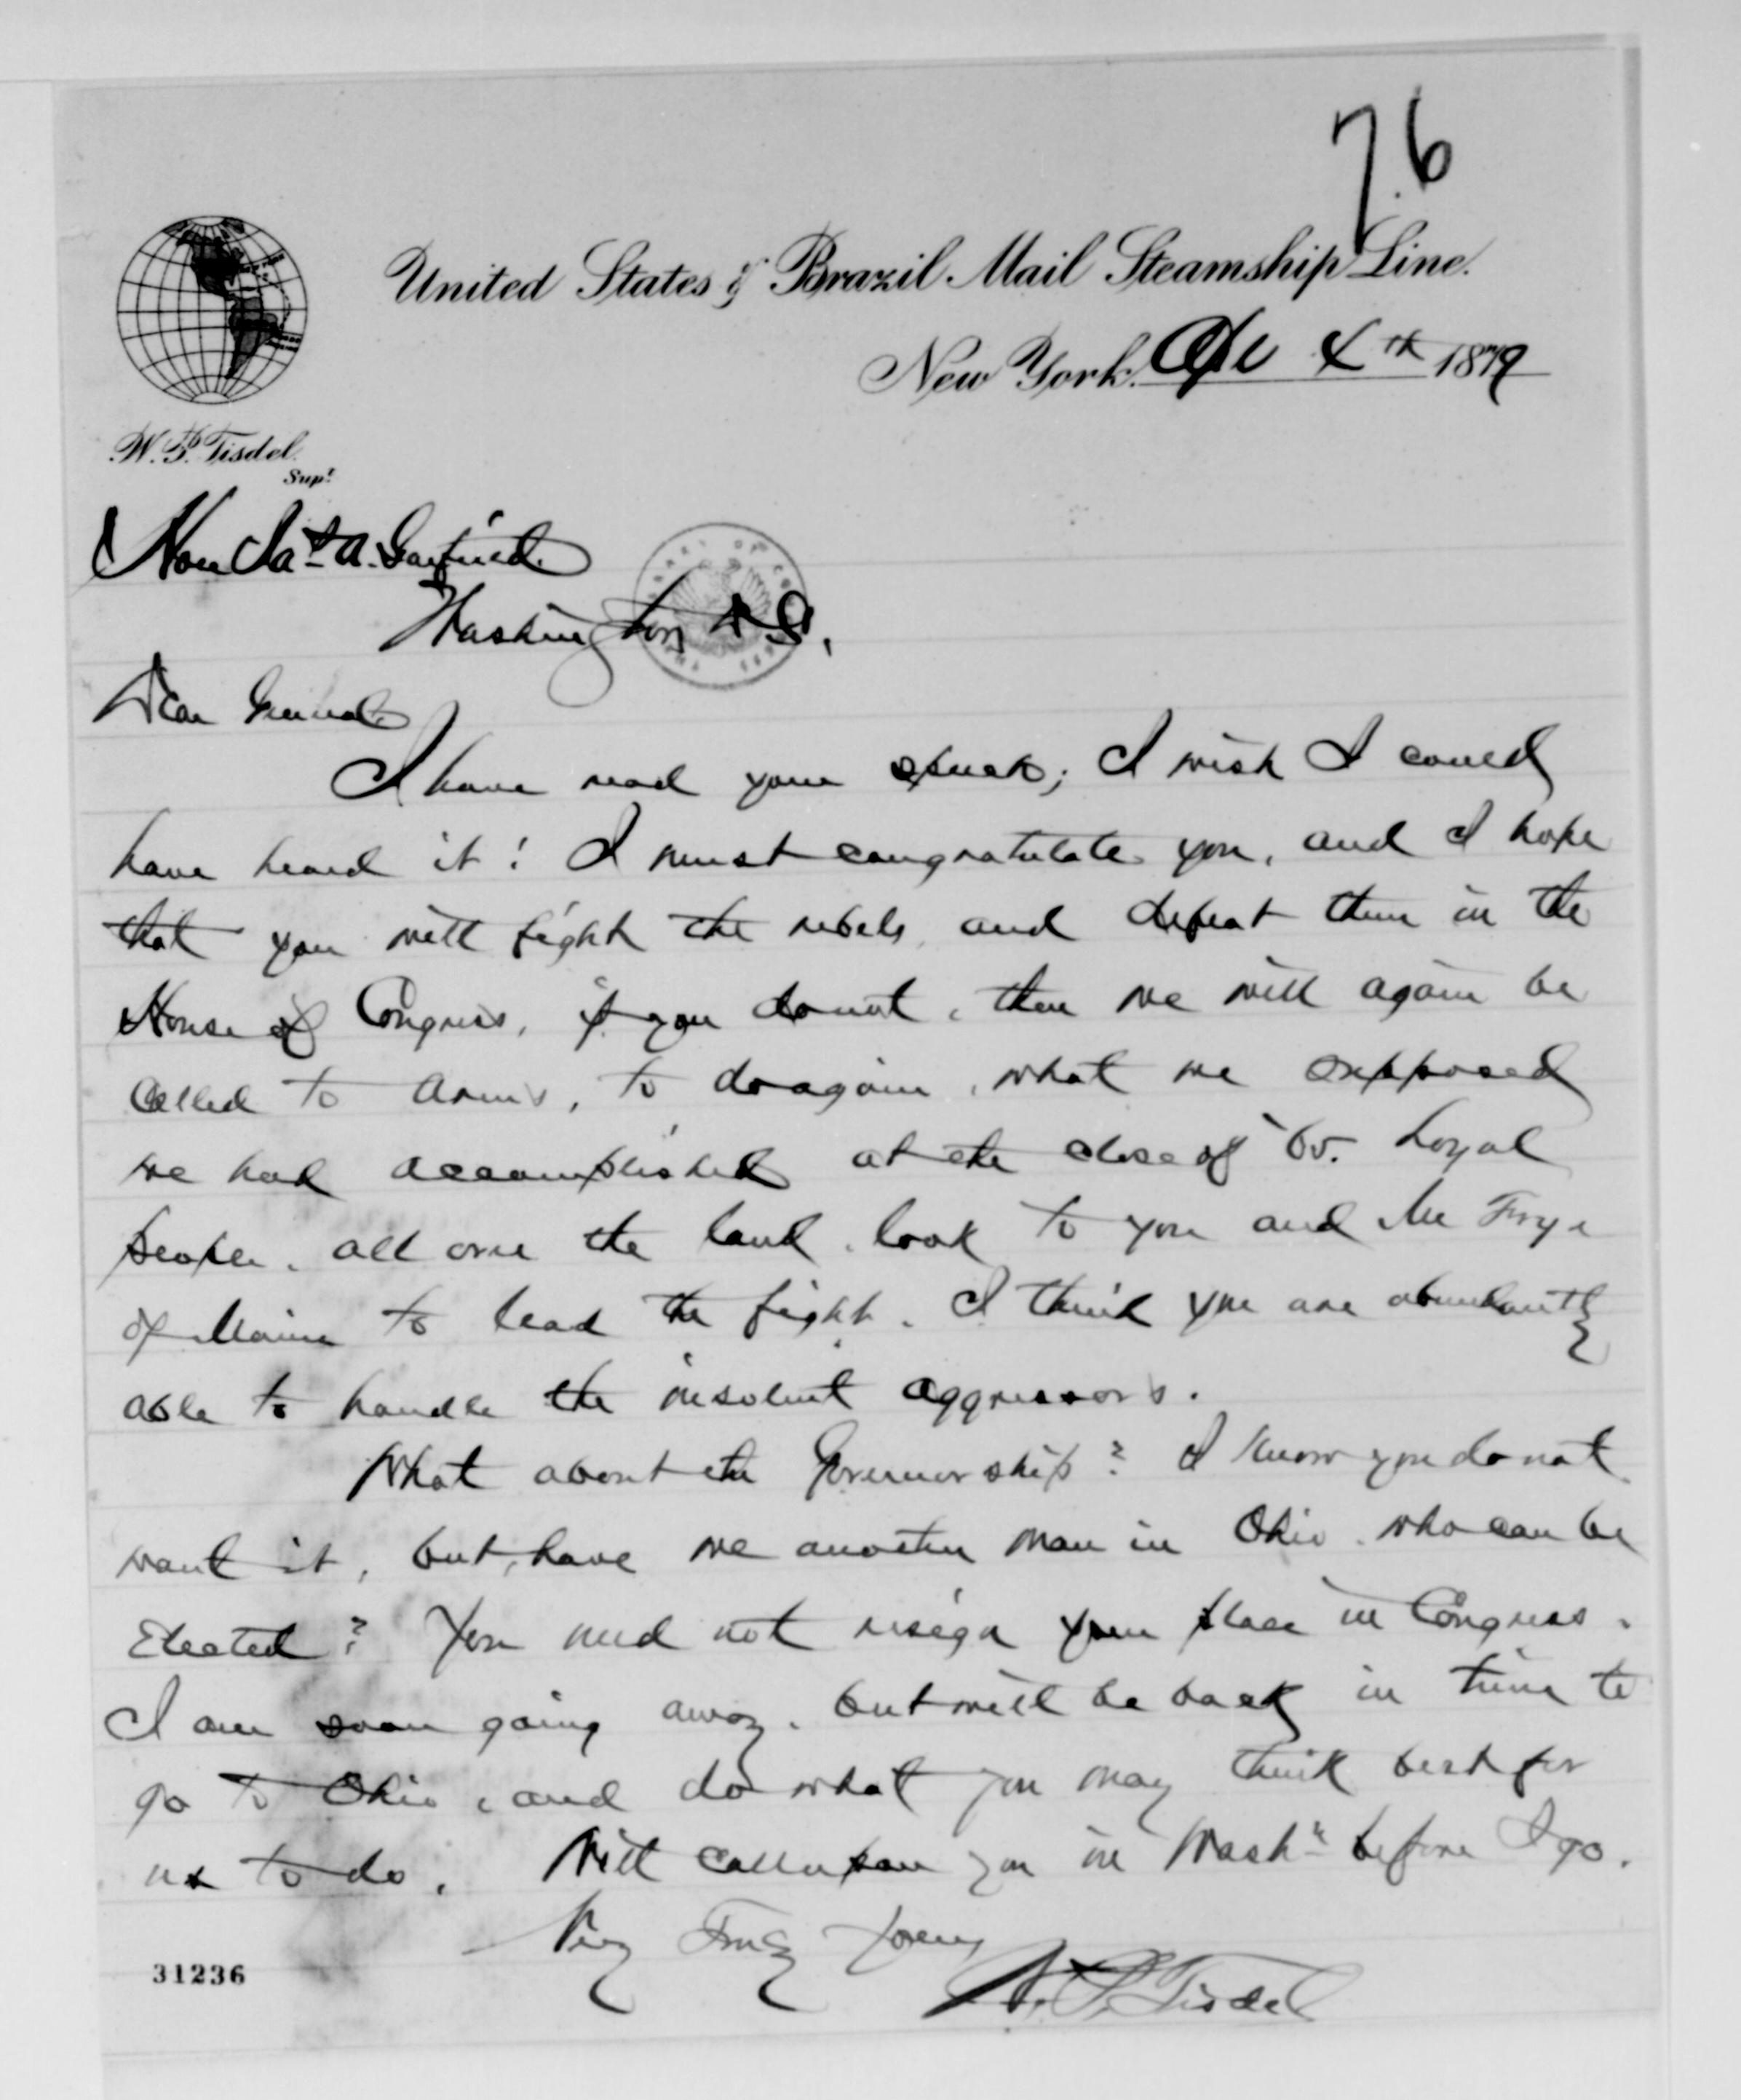 76
United States & Brazil Mail Steamship Line.
New York. Apl 4th 1879
W. P. Tisdel.
Supt.
Hon Jas A. Garfield
Washington D.C.
Dear General
I have read your speech; I wish I could
have heard it! I must congratulate you, and I hope
that you will fight the rebels, and defeat them in the
House of Congress, if you do not, then we will again be
called to arms, to do again, what we supposed
we had accomplished at the close of '65. Loyal
people, all over the land, look to you and Mr Frye
of Maine to lead the fight. I think you are abundantly
able to handle the insolent aggressors.
What about the Governorship? I know you do not
want it, but, have we another man in Ohio who can be
Elected? You need not resign your place in Congress.
I am soon going away, but will be back in time to
go to Ohio, and do what you may think best for
us to do. Will call upon you in Washn before I go.
Very Truly Yours
W. P. Tisdel
31236